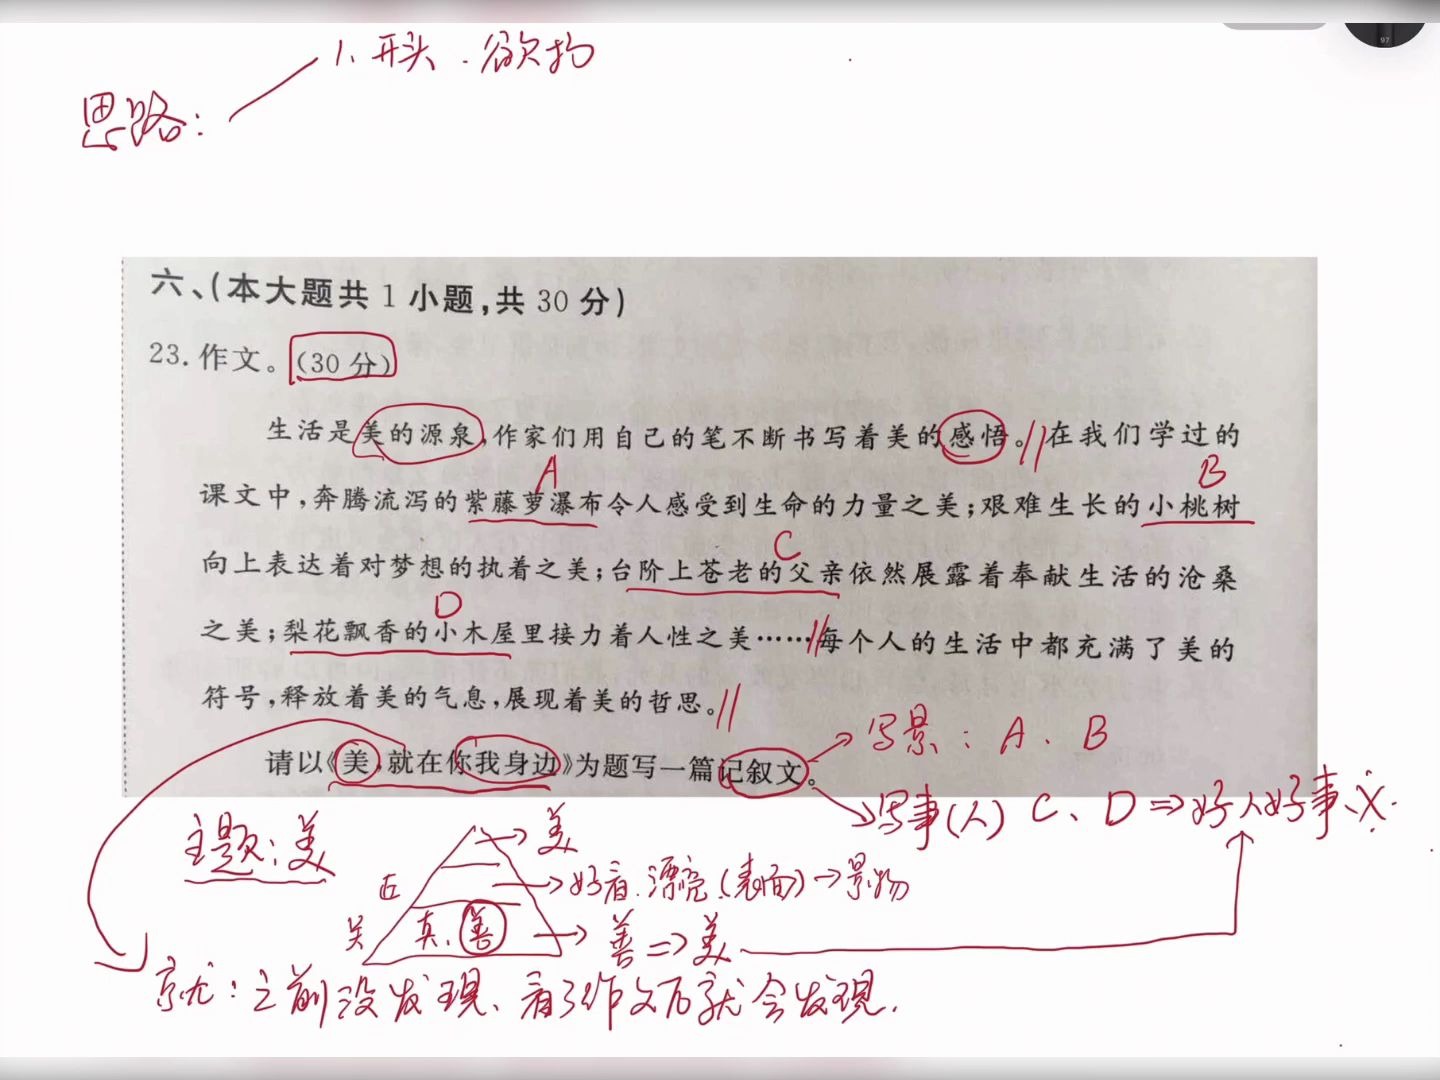 1、开头.欲扬
思路:
97
六、(本大题共1小题,共30分)
23.作文。(30分)
生活是美的源泉,作家们用自己的笔不断书写着美的感悟。在我们学过的
A
B
课文中,奔腾流泻的紫藤萝瀑布令人感受到生命的力量之美;艰难生长的小桃树
C
向上表达着对梦想的执着之美;台阶上苍老的父亲依然展露着奉献生活的沧桑
D
之美;梨花飘香的小木屋里接力着人性之美……每个人的生活中都充满了美的
符号,释放着美的气息,展现着美的哲思。
写景:A、B
请以《美,就在你我身边》为题写一篇记叙文。
写事(人)C、D⇒好人好事、
主题:美
美
好看.漂亮.(表面)→景物
真、善
善⇒美
就:之前没发现、看了作文后就会发现.